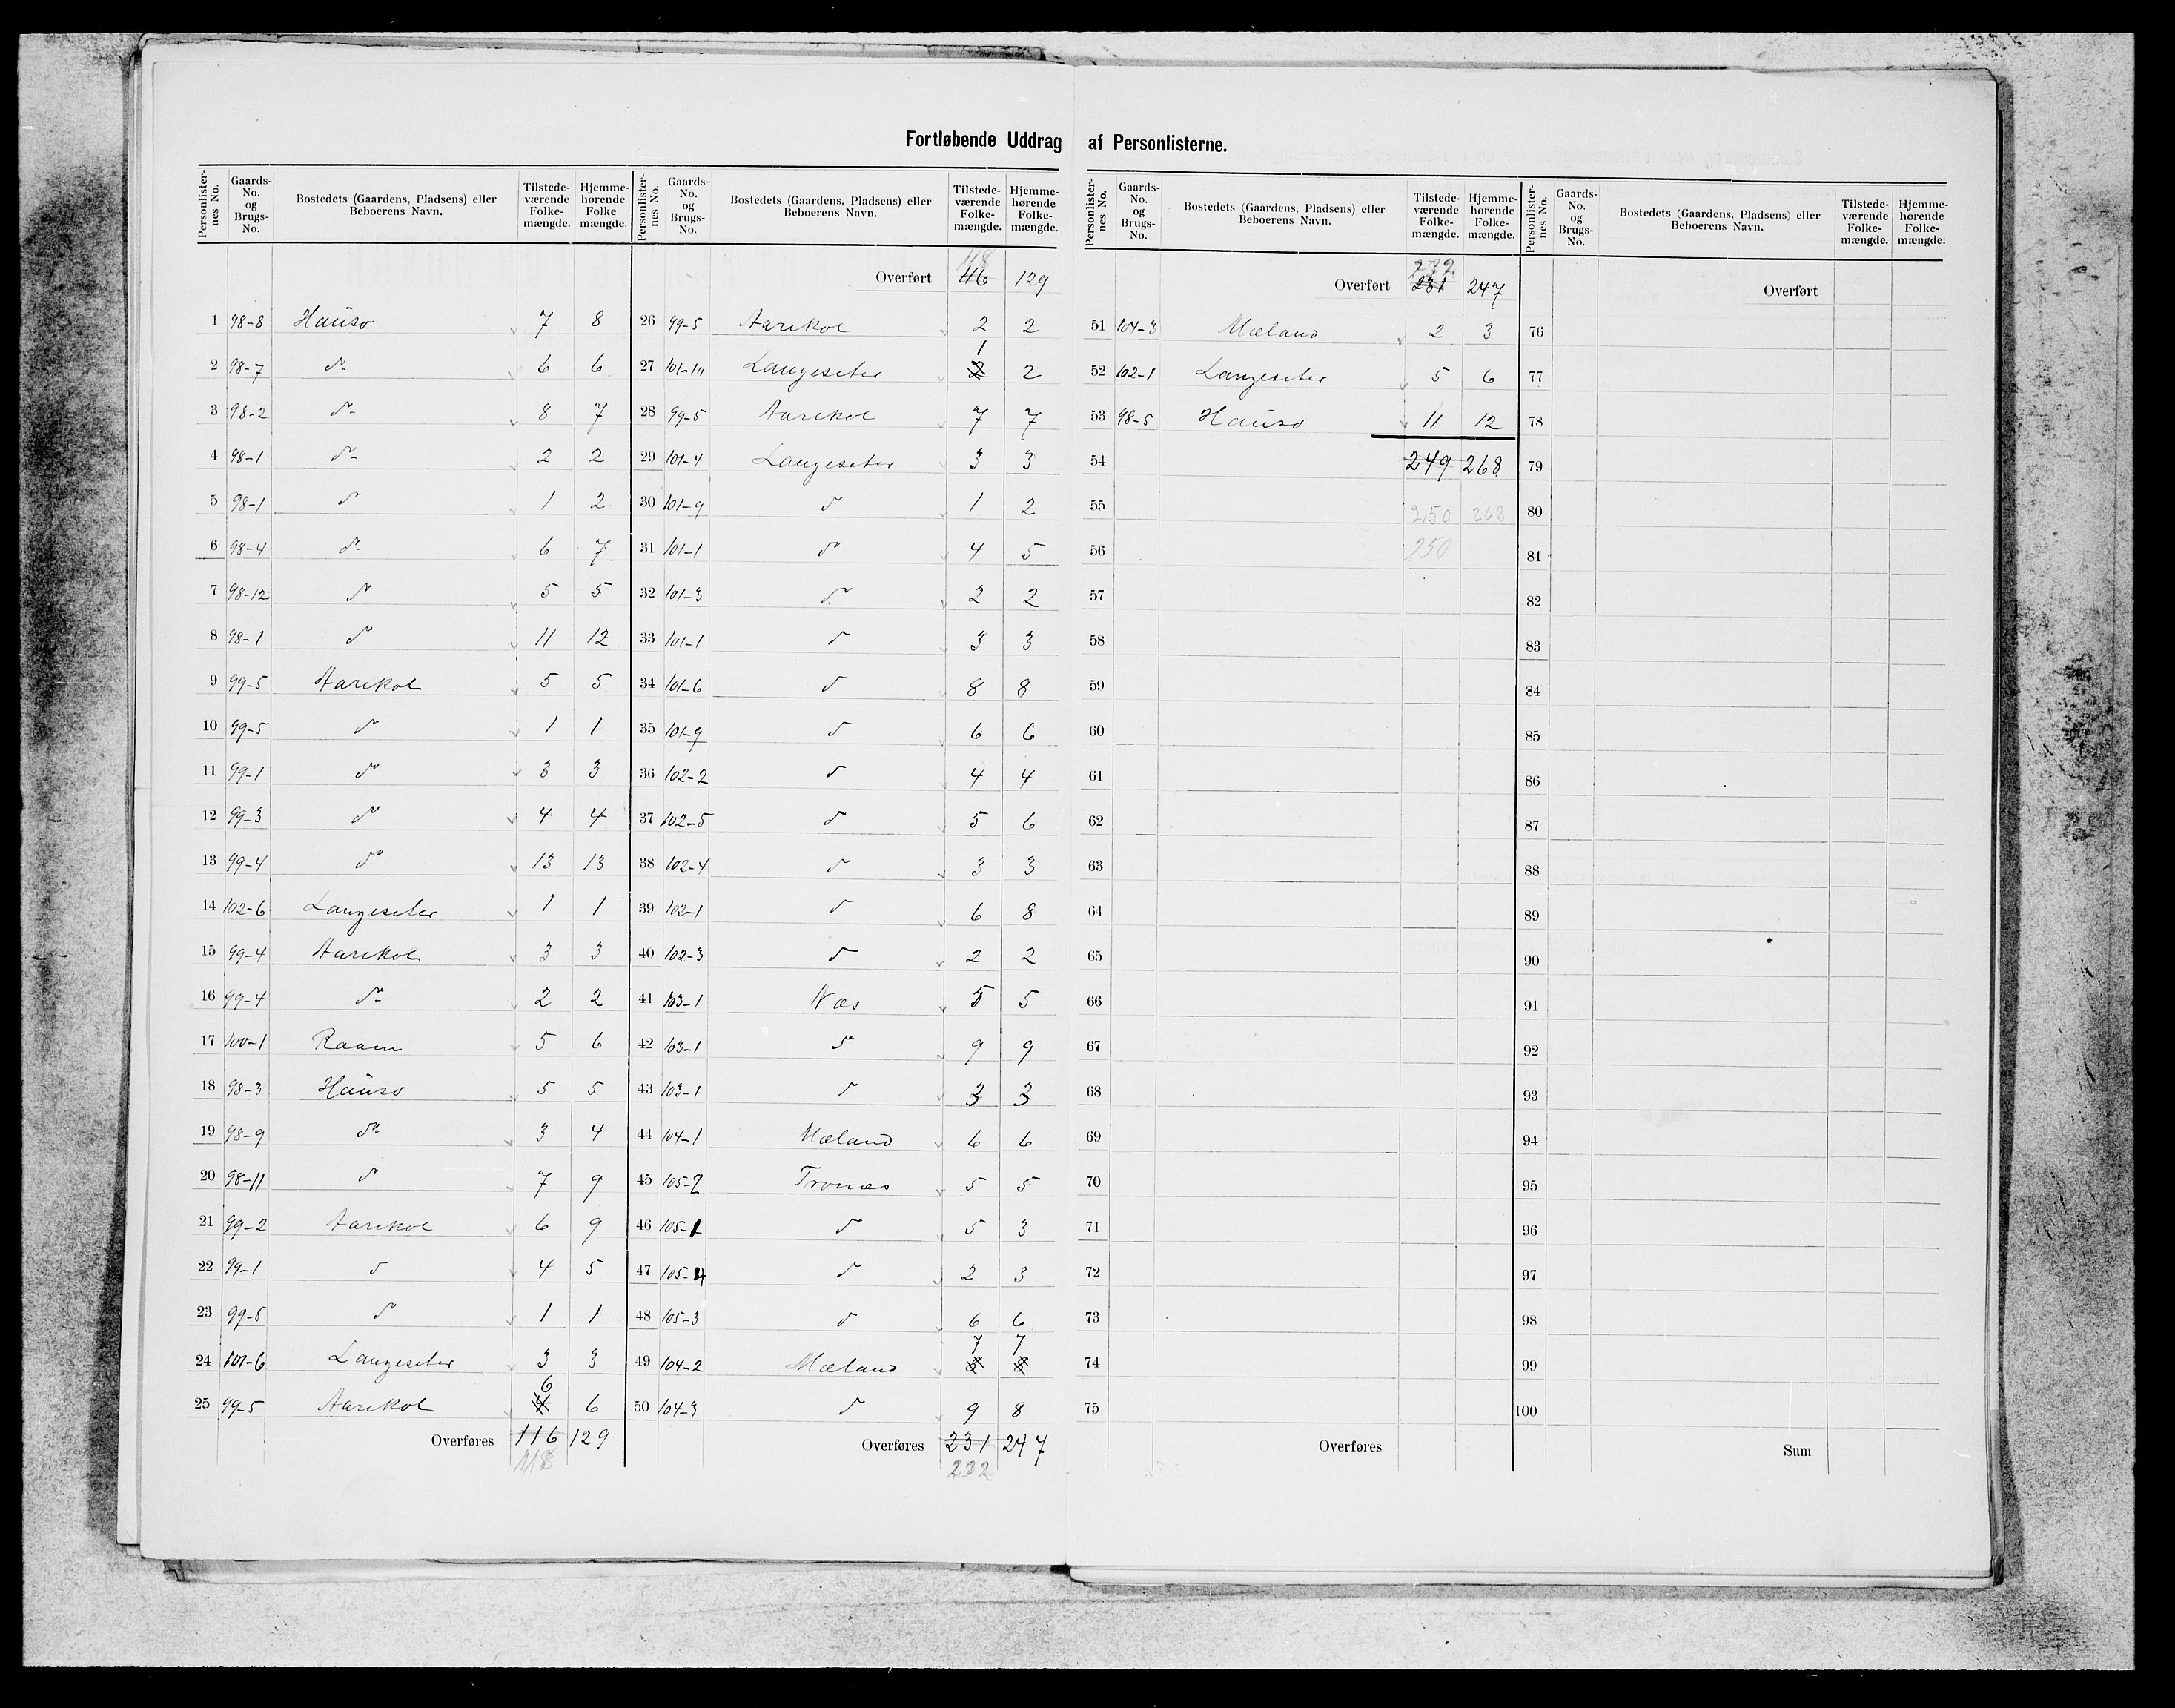 Fortløbende Uddrag af Personlisterne.
Personlister-nes No. Gaards-No. og Brugs-No. Bostedets (Gaardens, Pladsens) eller Beboerens Navn. Tilstede-værende Folke-mængde. Hjemme-hørende Folke mængde.
1 98-8 Hauso 7 8
2 98-7 do 6 6
3 98-2 do 8 7
4 98-1 do 2 2
5 98-1 do 1 2
6 98-4 do 6 7
7 98-12 do 5 5
8 98-1 do 11 12
9 99-5 Aarekol 5 5
10 99-5 do 1 1
11 99-1 do 3 3
12 99-3 do 4 4
13 99-4 do 13 13
14 102-6 Langeseter 1 1
15 99-4 Aarekol 3 3
16 99-4 do 2 2
17 100-1 Raaen 5 6
18 98-3 Hauso 5 5
19 98-9 do 3 4
20 98-11 do 7 9
21 99-2 Aarekol 6 9
22 99-1 do 4 5
23 99-5 do 1 1
24 101-6 Langeseter 3 3
25 99-5 Aarekol 6 6
Overføres 116 129
118
Personlister-nes No. Gaards-No. og Brugs-No. Bostedets (Gaardens, Pladsens) eller Beboerens Navn. Tilstede-værende Folke-mængde. Hjemme-hørende Folke-mængde.
118
Overført 116 129
26 99-5 Aarekol 2 2
27 Langeseter 1 2
28 99-5 Aarekol 7 7
29 101-4 Langeseter 3 3
30 101-9 do 1 2
31 101-1 do 4 5
32 101-3 do 2 2
33 101-1 do 3 3
34 101-6 do 8 8
35 101-9 do 6 6
36 102-2 do 4 4
37 102-5 do 5 6
38 102-4 do 3 3
39 102-1 do 6 8
40 102-3 do 2 2
41 103-1 Næs 5 5
42 103-1 do 9 9
43 103-1 do 3 3
44 104-1 Mæland 6 6
45 105-2 Tronæs 5 5
46 105-1 do 5 3
47 105-4 do 2 3
48 105-3 do 6 6
49 104-2 Mæland 7 7
50 104-3 do 9 8
Overføres 231 247
232
Personlister-nes No. Gaards-No. og Brugs-No. Bostedets (Gaardens, Pladsens) eller Beboerens Navn. Tilstede-værende Folke-mængde. Hjemme-hørende Folke-mængde.
232
Overført 231 247
51 104-3 Mæland 2 3
52 102-1 Langeseter 5 6
53 98-5 Hauso 11 12
54 249 268
55 250 268
56 250
57
58
59
60
61
62
63
64
65
66
67
68
69
70
71
72
73
74
75
Overføres
Personlister-nes No. Gaards-No. og Brugs-No. Bostedets (Gaardens, Pladsens) eller Beboerens Navn. Tilstede-værende Folke-mængde. Hjemme-hørende Folke-mængde.
Overført
76
77
78
79
80
81
82
83
84
85
86
87
88
89
90
91
92
93
94
95
96
97
98
99
100
Sum